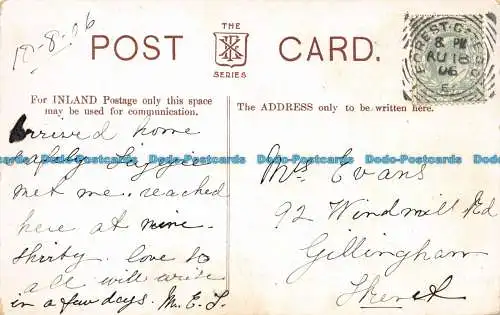 18-8-06
THE
POST CARD.
SERIES
FOREST-GATE S.O
8. PM
AU 18
06
E
For INLAND Postage only this space
may be used for communication.
The ADDRESS only to be written here.
Arrived home
safely Lizzie
met me. reached
here at nine-
thirty. love to
all will write
in a few days. M.E.L.
Mrs Evans
92 Windmill Rd
Gillingham
Kent
Dodo-Postcards Dodo-Postcards Dodo-Postcards Dodo-Postcards Dodo-Postcards